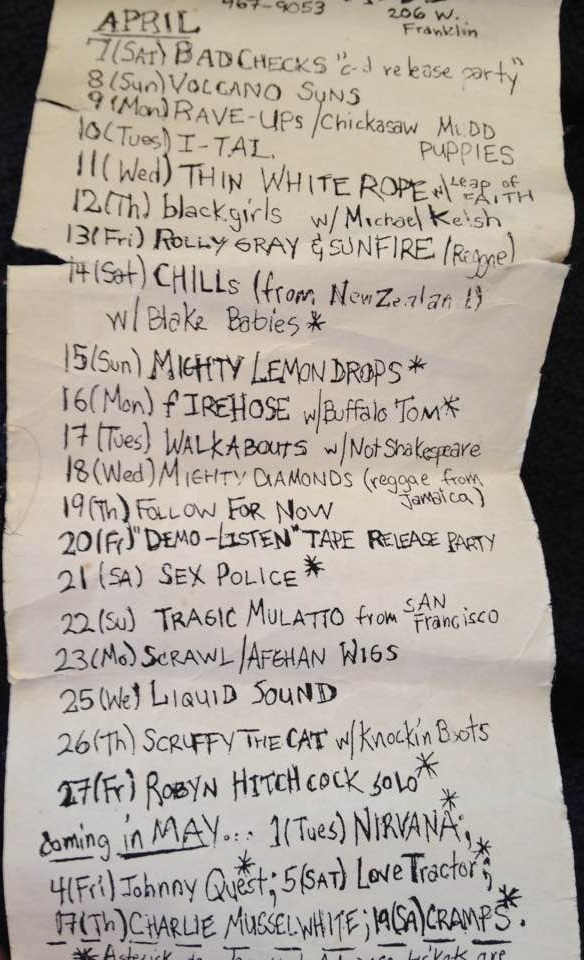 967-9053
206 W.
Franklin
APRIL
7(SAT) BAD CHECKS "c-d release party"
8(Sun) VOLCANO SUNS
9(Mon) RAVE-UPS/Chickasaw MUDD
PUPPIES
10(Tues) I-TAL.
11(Wed) THIN WHITE ROPE w/Leap of
FAITH
12(Th) blackgirls w/Michael Kelsh
13(Fri) ROLLY GRAY & SUNFIRE (Reggae)
14(Sat) CHILLS (from New Zealand!)
w/Blake Babies*
15(Sun) MIGHTY LEMON DROPS*
16(Mon) fIREHOSE w/Buffalo Tom*
17(Tues) WALKABOUTS w/NotShakespeare
18(Wed) MIGHTY DIAMONDS (reggae from
Jamaica)
19(Th) FOLLOW FOR NOW
20(Fr) "DEMO-LISTEN" TAPE RELEASE PARTY
21(SA) SEX POLICE*
22(Su) TRAGIC MULATTO from SAN
Francisco
23(Mo) SCRAWL/AFGHAN WIGS
25(We) LIQUID SOUND
26(Th) SCRUFFY THE CAT w/Knockin Boots
27(Fr) ROBYN HITCHCOCK SOLO*
coming in MAY... 1(Tues) NIRVANA*;
4(Fri) Johnny Quest*; 5(SAT) Love Tractor*;
17(Th) CHARLIE MUSSELWHITE; 19(SA) CRAMPS*.
*Asterisk tickets are